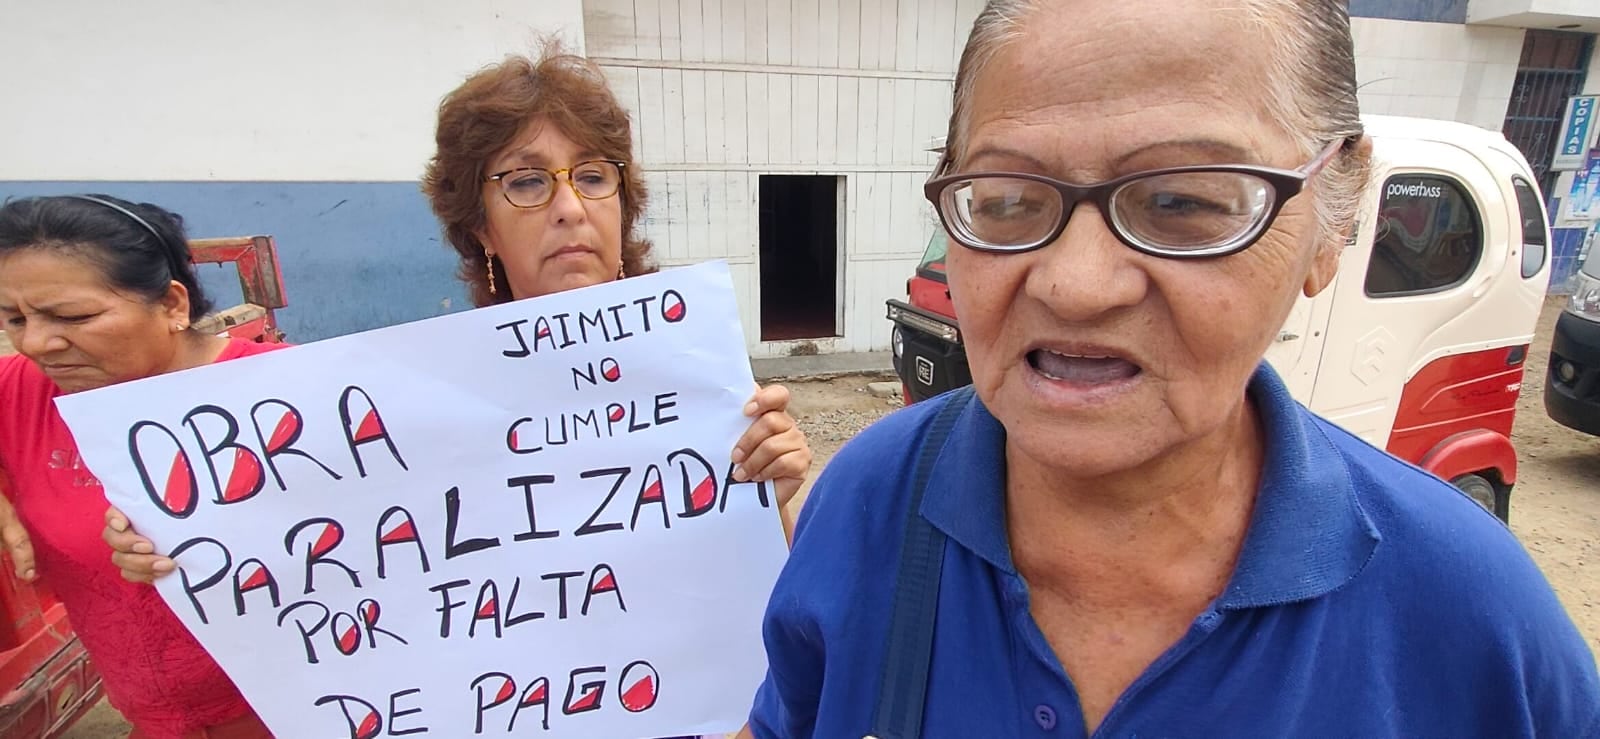 JAIMITO
NO
CUMPLE
OBRA
PARALIZADA
POR FALTA
DE PAGO
COPIAS
powerhass
RE